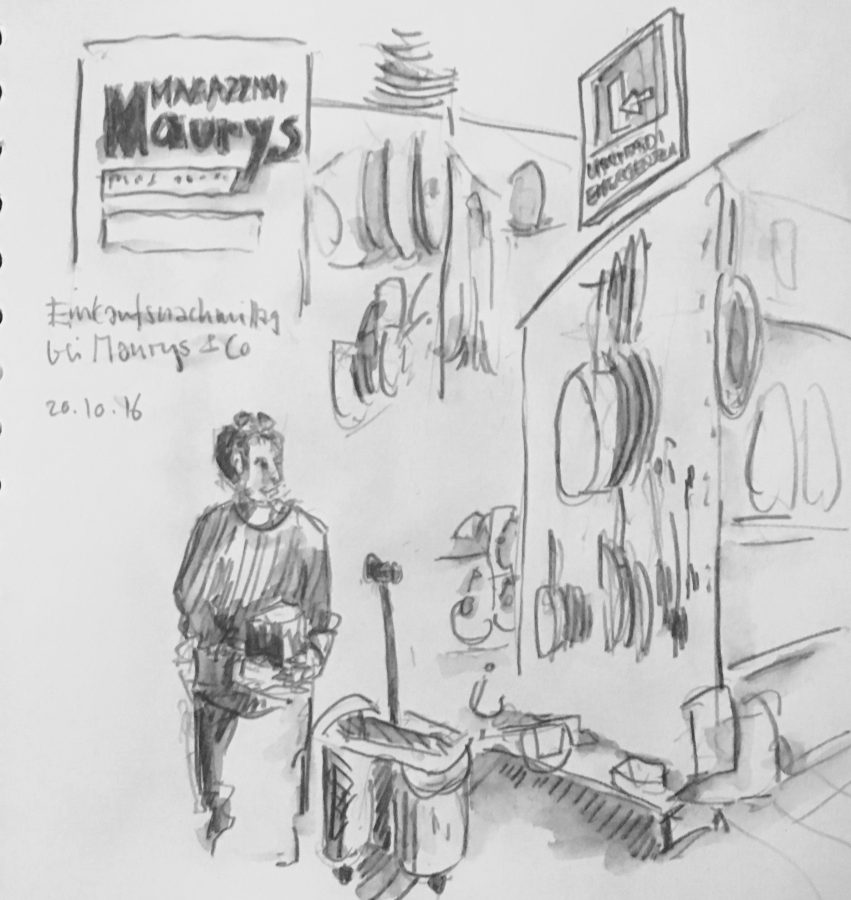 MAGAZZINI
Maurys
Einkaufsnachmittag
bei Maurys & Co
20.10.16
EMERGENZA